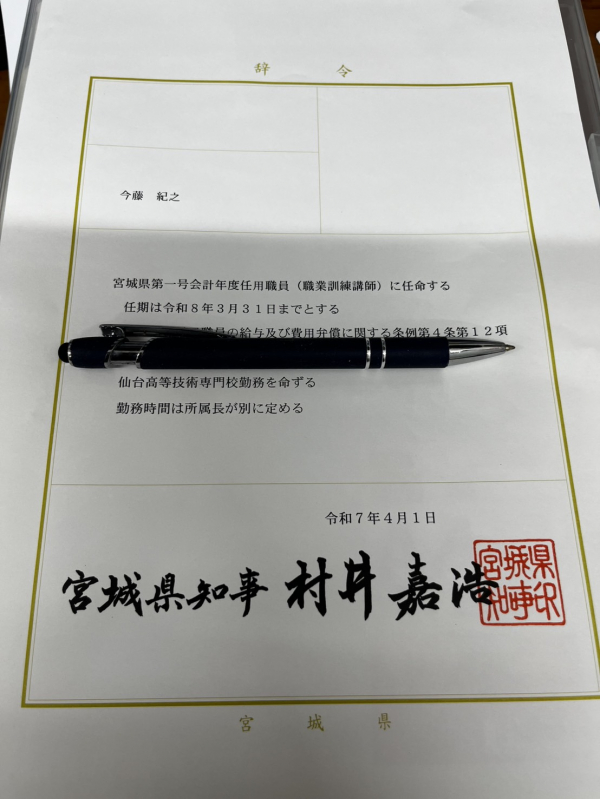 辞令
今藤 紀之
宮城県第一号会計年度任用職員（職業訓練講師）に任命する
任期は令和８年３月３１日までとする
職員の給与及び費用弁償に関する条例第４条第１２項
仙台高等技術専門校勤務を命ずる
勤務時間は所属長が別に定める
令和７年４月１日
宮城県知事 村井嘉浩
宮城県知事印
宮城県